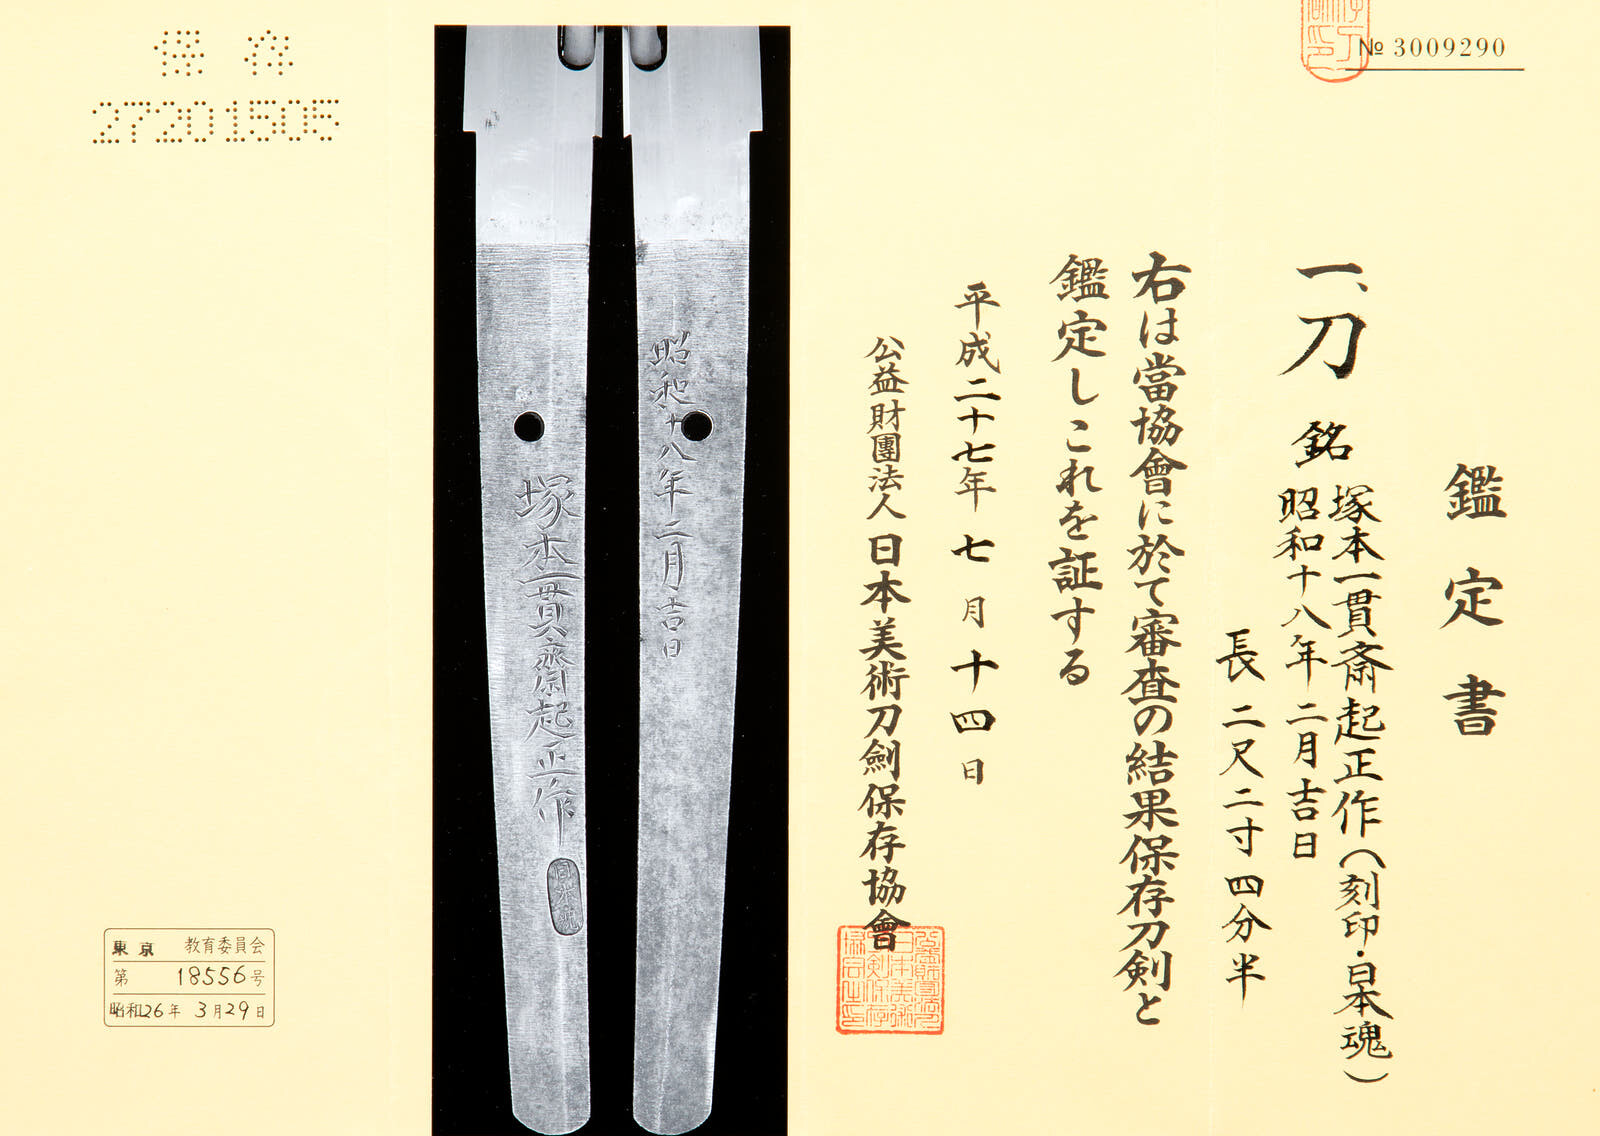 № 3009290
鑑定書
一、刀 銘 塚本一貫斎起正作(刻印・日本魂)
昭和十八年二月吉日
長 二尺二寸四分半
右は當協會に於て審査の結果保存刀剣と
鑑定しこれを証する
平成二十七年 七 月 十四 日
公益財團法人日本美術刀劍保存協會
昭和十八年二月吉日
塚本一貫斎起正作
日本魂
保存
27201505
東京 教育委員会
第 18556号
昭和26年 3月29日